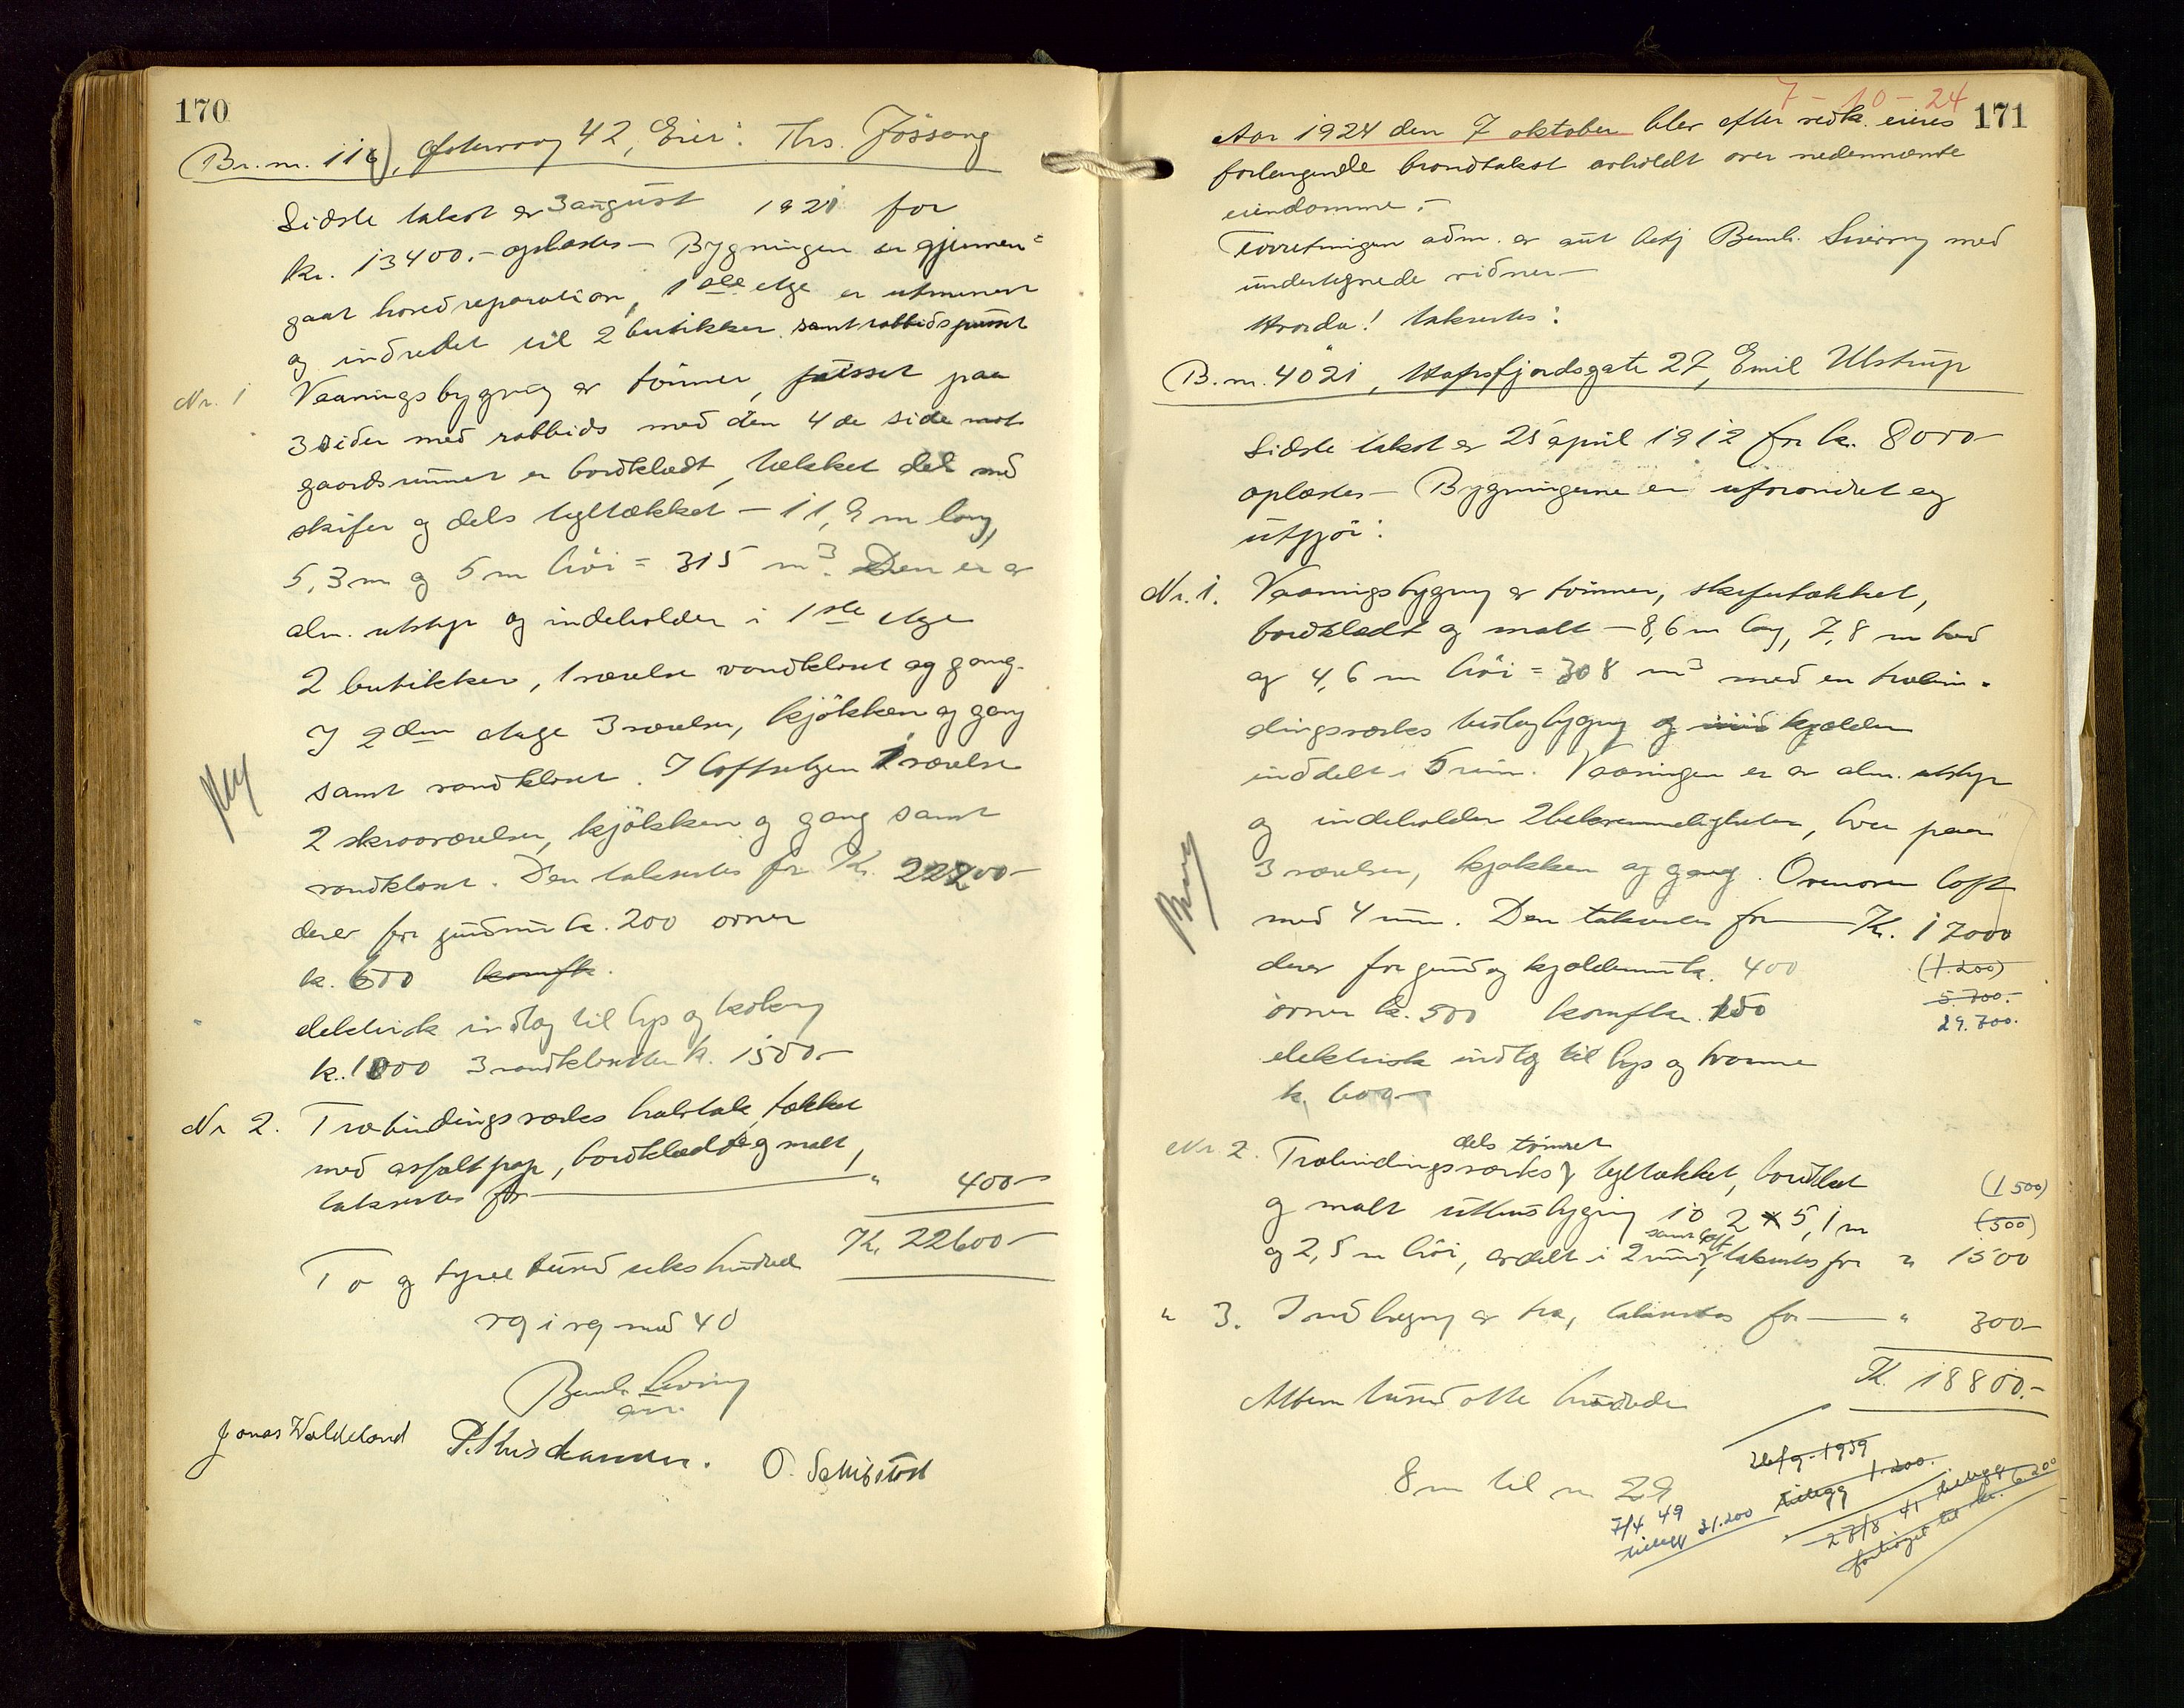 170
Br. nr. 116, Østervaag 42, Eier: Ths. Jössang
Sidste takst er 3 august 1921 for
kr. 13400.- oplæstes — Bygningen er gjennem=
gaat hovedreparation, 1ste etge er utmurert
og indredet til 2 butikker. samt rabbidspusset
Nr. 1 Vaaningsbygning av tömmer, pusset paa
3 sider med rabbids med den 4de side mot
gaardsrummet er bordklædt, tækket dels med
skifer og dels tegltækket — 11,9 m lang,
5,3 m og 5 m höi = 315 m³. Den er av
alm. utstyr og indeholder i 1ste etge
2 butikker, 1 værelse vandkloset og gang.
I 2den etage 3 værelser, kjökken og gang
samt vandkloset. I loftsetgen 1 værelse
2 skraaværelser, kjökken og gang samt
vandkloset. Den takseres for Kr. 22200-
derav for grundmur kr. 200 ovner
kr. 600 komfk.
elektrisk indlæg til lys og kokning
kr. 1000 3 vandklosetter kr. 1500.-
Nr 2. Træbindingsværks halvtak, tækket
med asfaltpap, bordklædt og malt,
takseres for — " 400-
Kr. 22600-
To og tyve tusend seks hundrede
vg i vg med 40
Bernh. Sviring
Jonas Waldeland P. Kristiansen. O. Sællistad
7-10-24
171
Aar 1924 den 7 oktober blev efter vedk. eieres
forlangende brandtakst avholdt over nedennævnte
eiendomme.-
Forretningen adm. av aut betj Bernh. Sviring med
undertegnede vidner—
Hvorda! takseres:
B. nr. 4021, Hafrsfjordsgate 27, Emil Ulstrup
Sidste takst er 25 april 1912 for kr. 8000-
oplæstes — Bygningerne er uforandret og
utgjör:
Nr. 1. Vaaningsbygning av tömmer, skifertækket,
bordklædt og malt — 8,6 m lang, 7,8 m bred
og 4,6 m höi = 308 m³ med en træbin=
dingsværks tilbygning og kjælder
inddelt i 5 rum. Vaaningen er av alm. utstyr
og indeholder 2 bekvemmeligheter, hver paa
3 værelser, kjøkken og gang. Ovenover loft
med 4 rum. Den takseres for — Kr. 17000
derav for grund og kjældermur kr. 400 (1.200)
ovner kr. 500 komfkr. 150 5.700.-
29.700.
elektrisk indlæg til lys og varme
kr. 600-
Nr. 2. Træbindingsværks dels tömret tegltækket, bordklædt (1500)
og malt uthusbygning 10,2 x 5,1 m (500)
og 2,5 m höi, avdelt i 2 rum samt loft, takseres for " 1500
" 3. Indhegning av træ, takseres for — " 300-
Kr. 18800.-
Atten tusend otte hundrede
8 m til nr 29
26/9-1939
tillegg 1.200.
7/4 49
tillegg 31.200
27/8 41 tillegg
forhöiet til kr. 6.200